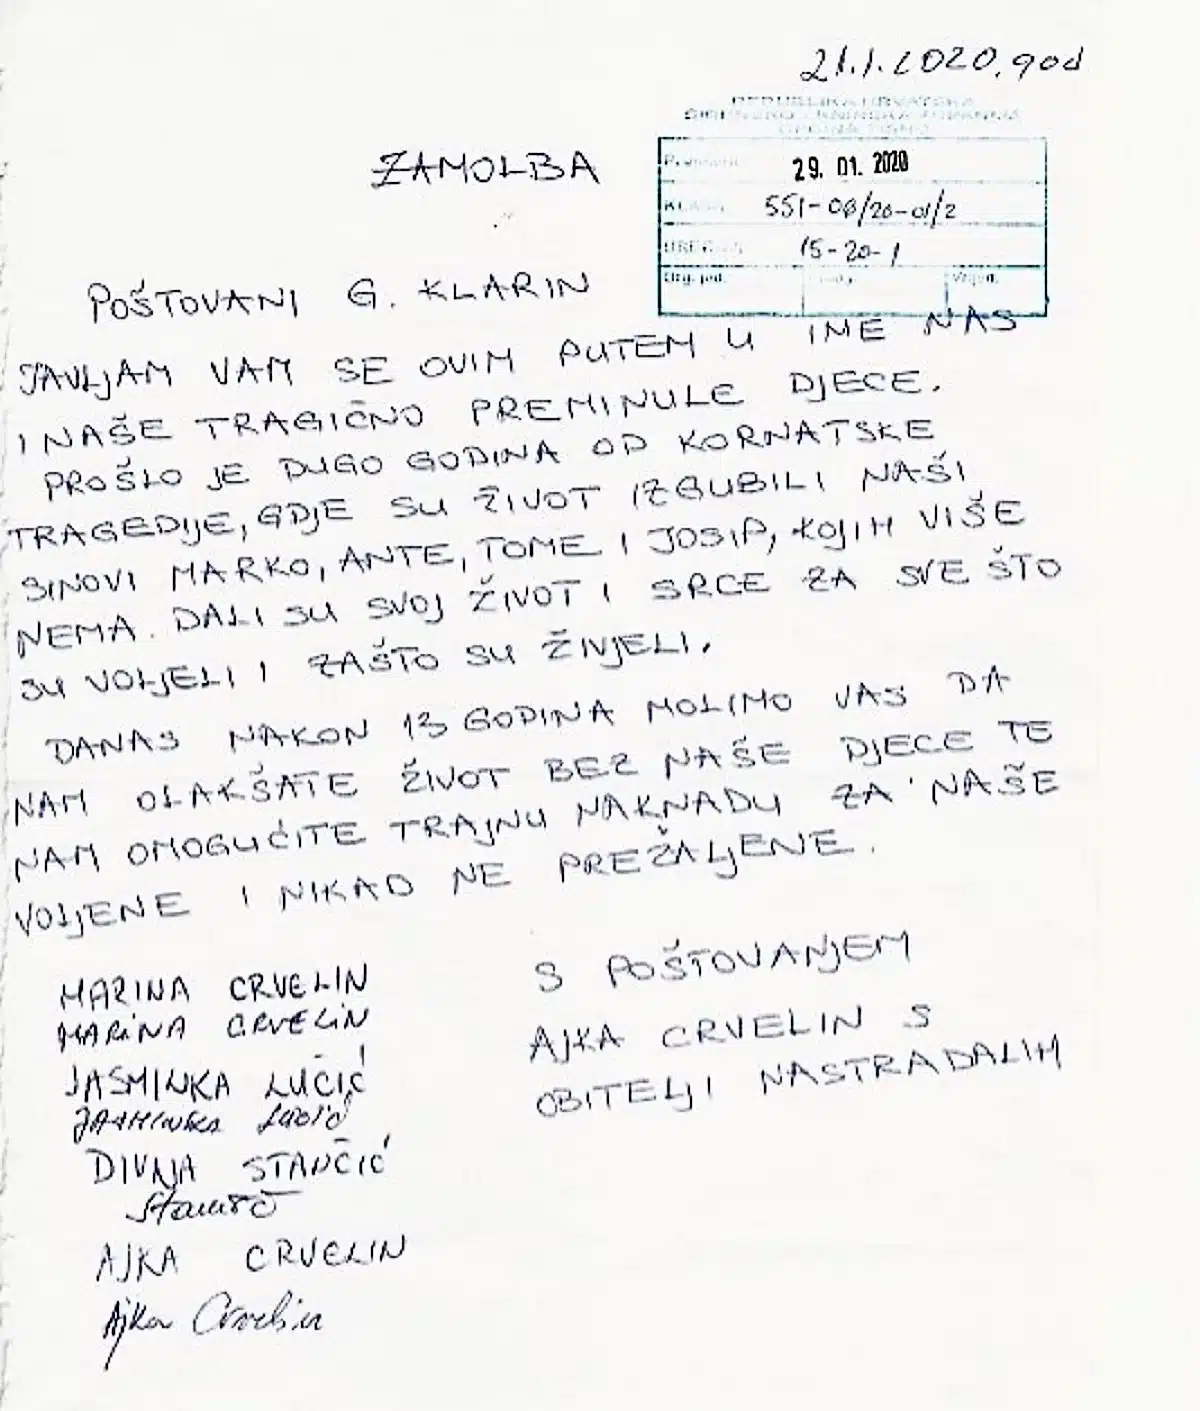 21.1.2020.god
REPUBLIKA HRVATSKA
ŠIBENSKO - KNINSKA ŽUPANIJA
OPĆINA TISNO
29. 01. 2020
ZAMOLBA
KLASA 551-06/20-01/2
15-20-1
Org. jed.
POŠTOVANI G. KLARIN
JAVLJAM VAM SE OVIM PUTEM U IME NAS
I NAŠE TRAGIČNO PREMINULE DJECE.
PROŠLO JE DUGO GODINA OD KORNATSKE
TRAGEDIJE, GDJE SU ŽIVOT IZGUBILI NAŠI
SINOVI MARKO, ANTE, TOME I JOSIP, KOJIH VIŠE
NEMA. DALI SU SVOJ ŽIVOT I SRCE ZA SVE ŠTO
SU VOLJELI I ZAŠTO SU ŽIVJELI.
DANAS NAKON 13 GODINA MOLIMO VAS DA
NAM OLAKŠATE ŽIVOT BEZ NAŠE DJECE TE
NAM OMOGUĆITE TRAJNU NAKNADU ZA NAŠE
VOLJENE I NIKAD NE PREŽALJENE.
S POŠTOVANJEM
AJKA CRVELIN S
OBITELJI NASTRADALIH
MARINA CRVELIN
MARINA CRVELIN
JASMINKA LUČIĆ
JASMINKA Lučić
DIVNJA STANČIĆ
AJKA CRVELIN
Ajka Crvelin